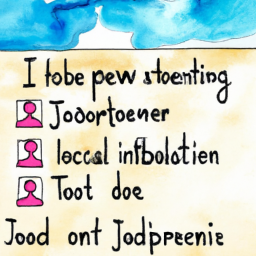 I tobe pew stoenting
Jodortoener
leccal infbolotien
Toot doe
Jood ont Jodpreenie